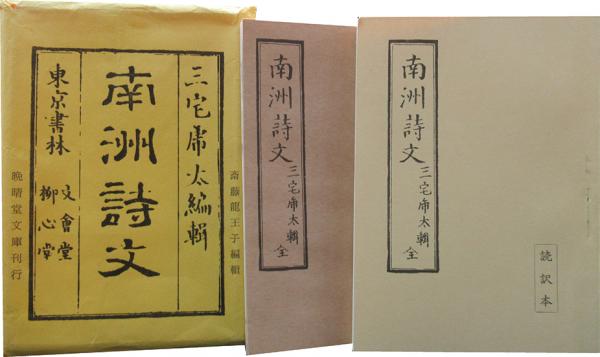 斎藤龍王子編輯
三宅乕太編輯
南洲詩文
東京書林
文會堂
柳心堂
晩晴堂文庫刊行
南洲詩文 三宅乕太輯 全
南洲詩文 三宅乕太輯 全
読訳本